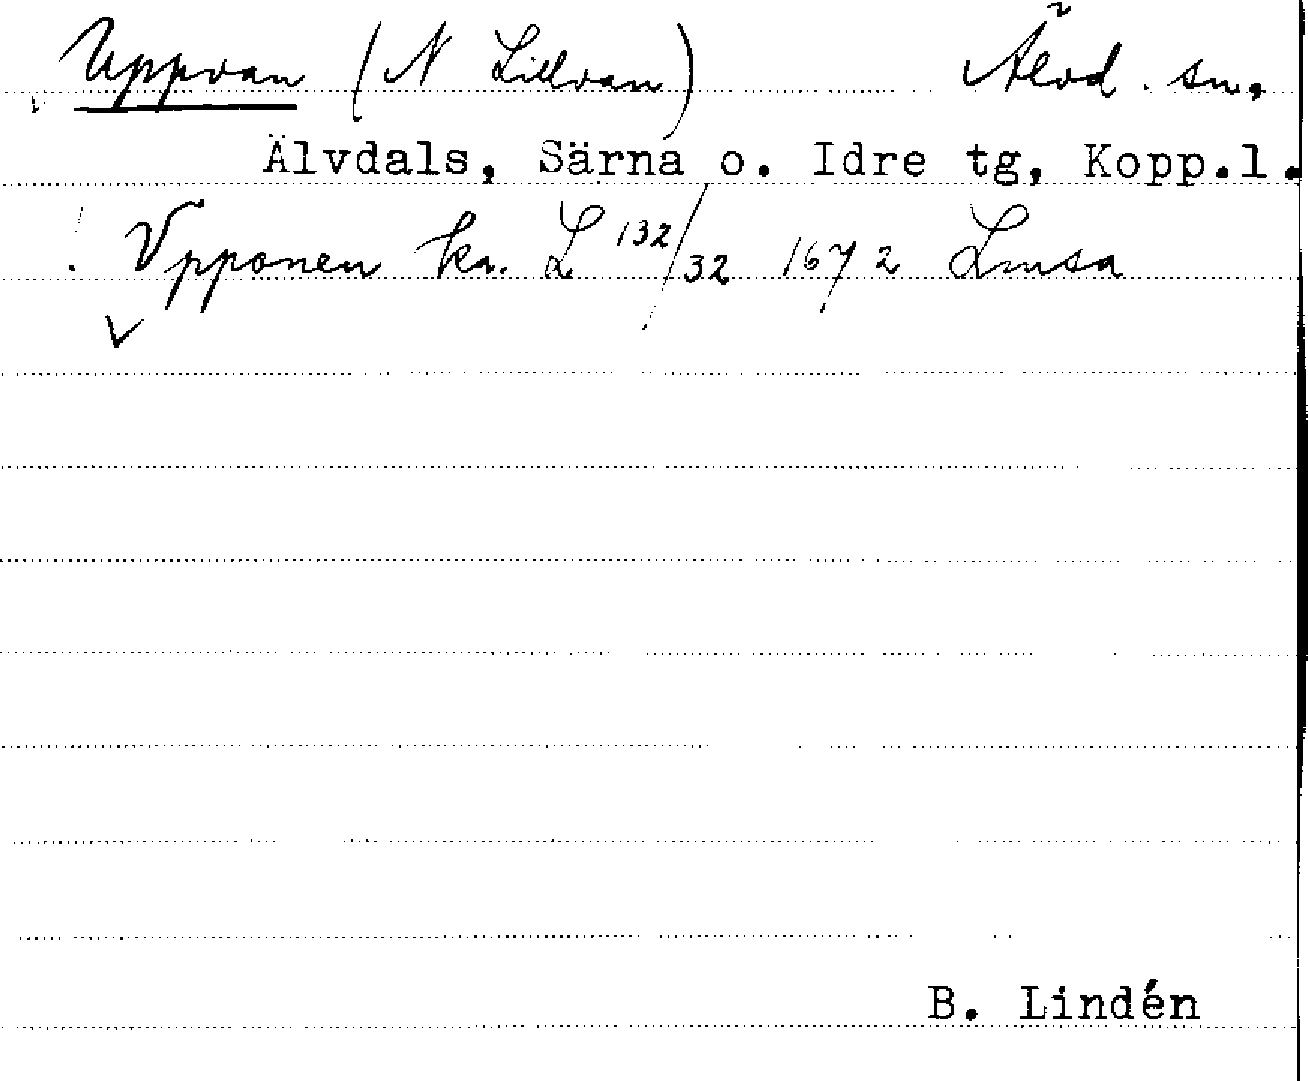 Uppvan (N Lillvan) Älvd. sn,
Älvdals, Särna o. Idre tg, Kopp.l.
Vpponen ka. L 132/32 1672 Lmsa
B. Lindén